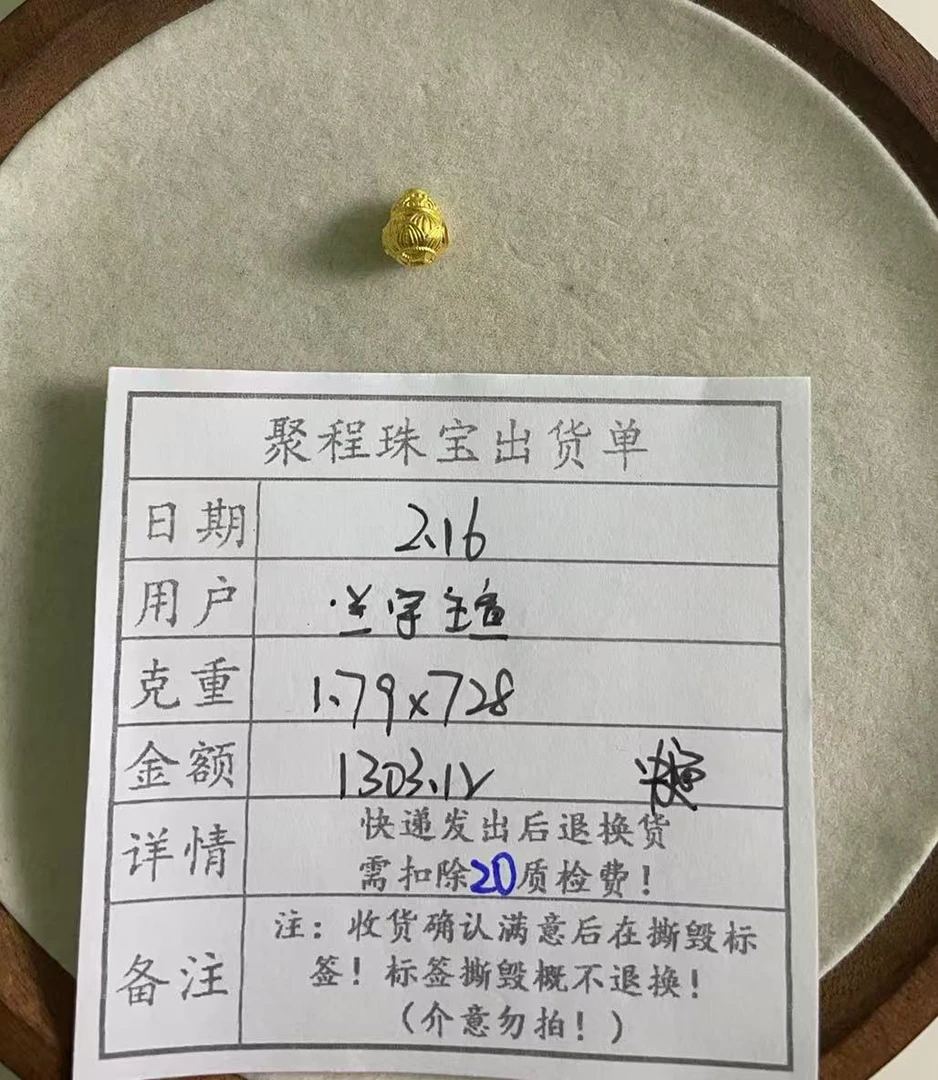 聚程珠宝出货单
日期 2.16
用户
克重 1.79x728
金额 1303.12
详情 快递发出后退换货
需扣除20质检费!
备注 注:收货确认满意后在撕毁标
签!标签撕毁概不退换!
(介意勿拍!)